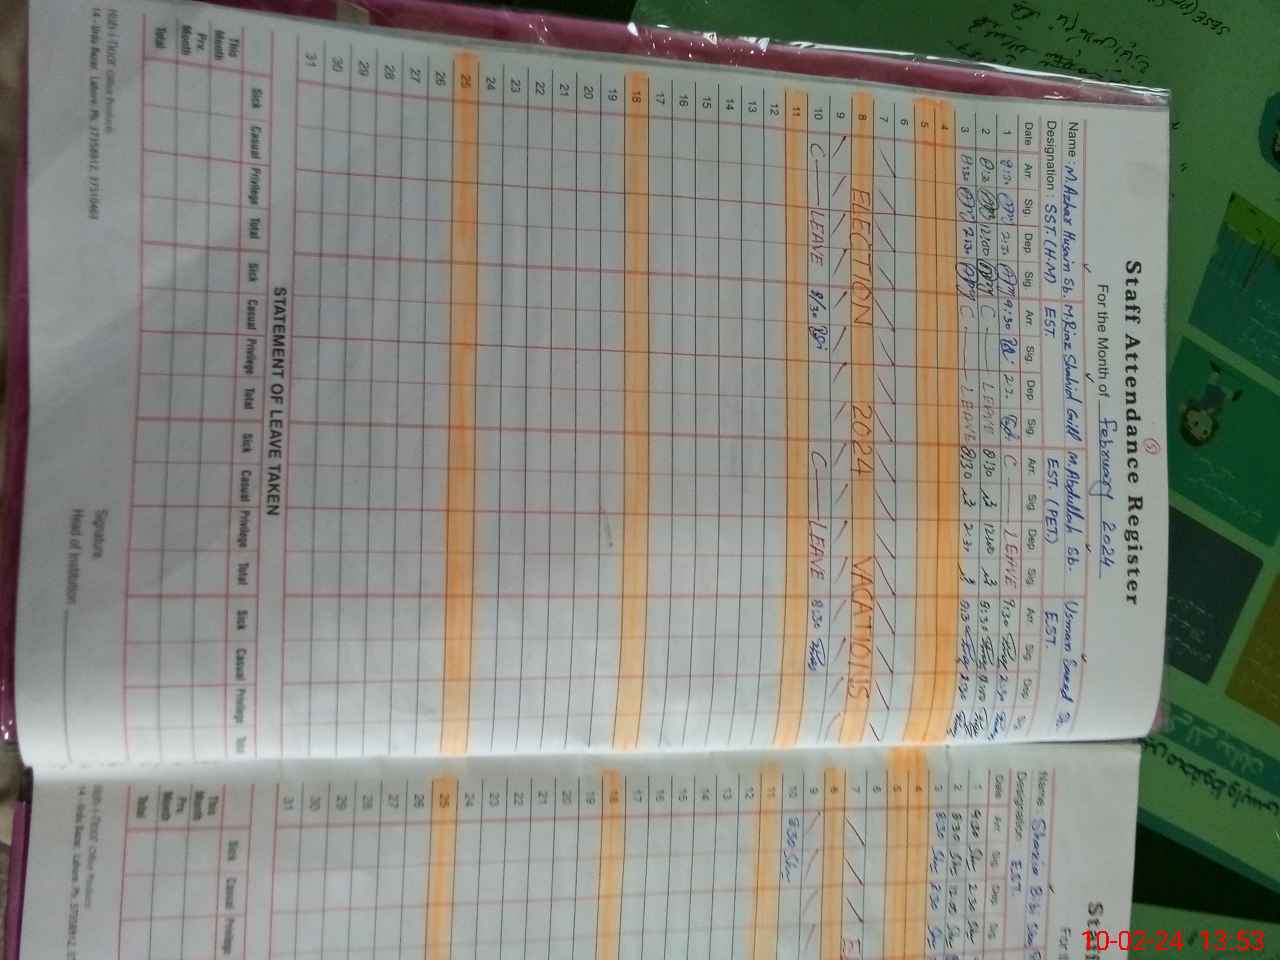 Staff Attendance Register
5
For the Month of February 2024
Name : M. Azhar Husain Sb. M. Riaz Shahid Gill M. Abdullah Sb. Usman Saeed Sb.
Designation : SST. (H.M) EST. EST. (PET) EST.
Date Arr. Sig. Dep. Sig. Arr. Sig. Dep. Sig. Arr. Sig. Dep. Sig. Arr. Sig. Dep. Sig.
1 9:30 2:30 9:30 2:30 C LEAVE 9:30 2:30
2 8:30 12:00 C LEAVE 8:30 12:00 8:30 12:00
3 8:30 2:30 C LEAVE 8:30 2:30 8:30 2:30
4
5
6
7
8 ELECTION 2024 VACATIONS
9
10 C LEAVE 8/30 C LEAVE 8:30
11
12
13
14
15
16
17
18
19
20
21
22
23
24
25
26
27
28
29
30
31
STATEMENT OF LEAVE TAKEN
Sick Casual Privilege Total Sick Casual Privilege Total Sick Casual Privilege Total Sick Casual Privilege Total
This Month
Prv. Month
Total
Signature
Head of Institution
14 - Urdu Bazar Lahore. Ph: 37358812, 37310468
Staff
For
Name : Shazia Bibi
Designation : EST.
Date Arr. Sig. Dep. Sig.
1 9:30 2:30
2 8:30 12:00
3 8:30 2:30
4
5
6
7
8
9
10 8:30
11
12
13
14
15
16
17
18
19
20
21
22
23
24
25
26
27
28
29
30
31
Sick Casual Privilege
This Month
Prv. Month
Total
10-02-24 13:53